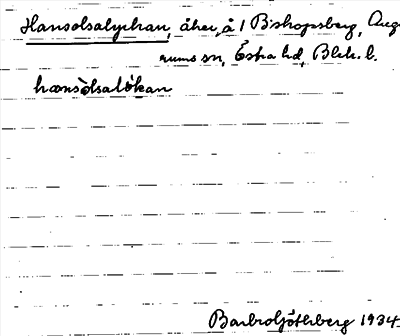 Hansolsalyckan, åker, å 1 Biskopsberg, Aug-
rums sn, Östra hd, Blek. l.
hansòlsalókan
Barbro Götberg 1934.